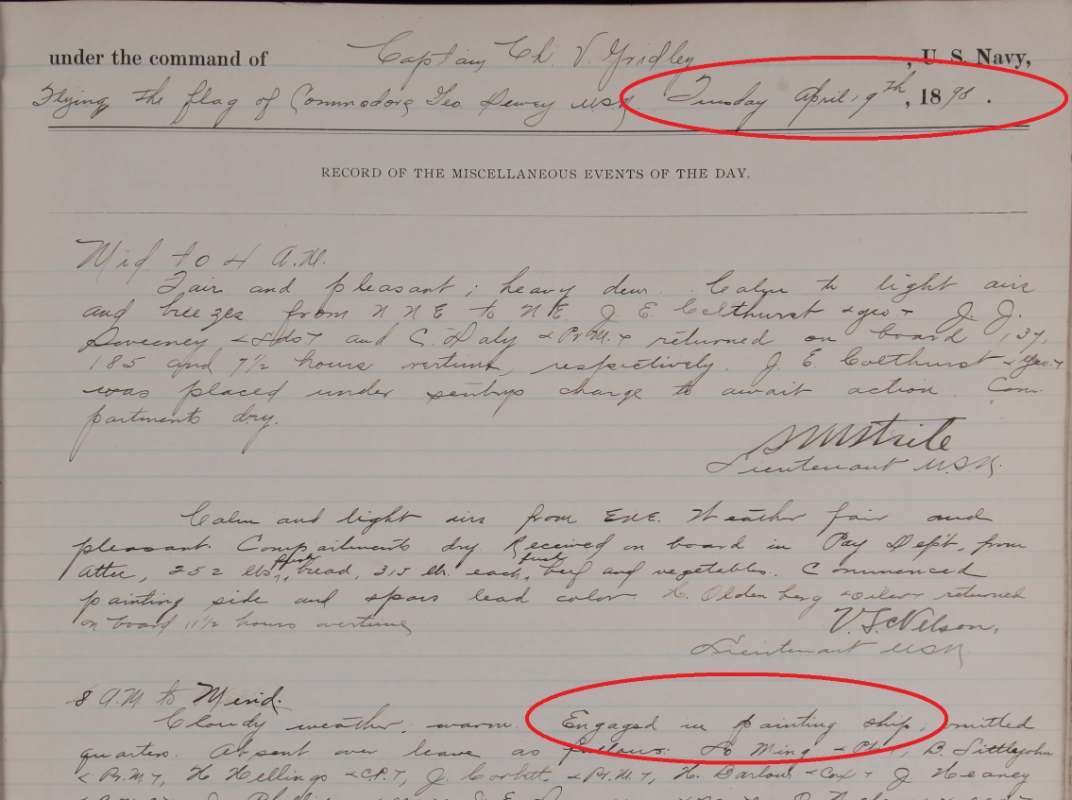 under the command of Captain Ch. V. Gridley, U. S. Navy,
Flying the flag of Commodore Geo Dewey USN Tuesday April 19th, 1898.
RECORD OF THE MISCELLANEOUS EVENTS OF THE DAY.
Mid to 4 A.M.
Fair and pleasant; heavy dew. Calm to light airs
and breezes from NNE to NE. J E Colthurst J. J.
Sweeney and C. Daly returned on board, 137,
185 and 7½ hours overtime, respectively. J E Colthurst
was placed under sentrys charge to await action. Com
partments dry.
Lieutenant USN.
Calm and light airs from ENE. Weather fair and
pleasant. Compartments dry. Received on board in Pay Dept, from
252 lbs. fresh bread, 315 lb. each, fresh beef and vegetables. Commenced
painting side and spars lead color. H. Oldenberg returned
on board 11½ hours overtime
V. S. Nelson,
Lieutenant USN
8 A.M to Merid.
Cloudy weather, warm. Engaged in painting ship, omitted
quarters. Absent over leave as follows: Ao Ming B. Littlejohn
H Hellings J Corbett, H. Barlow J Heaney